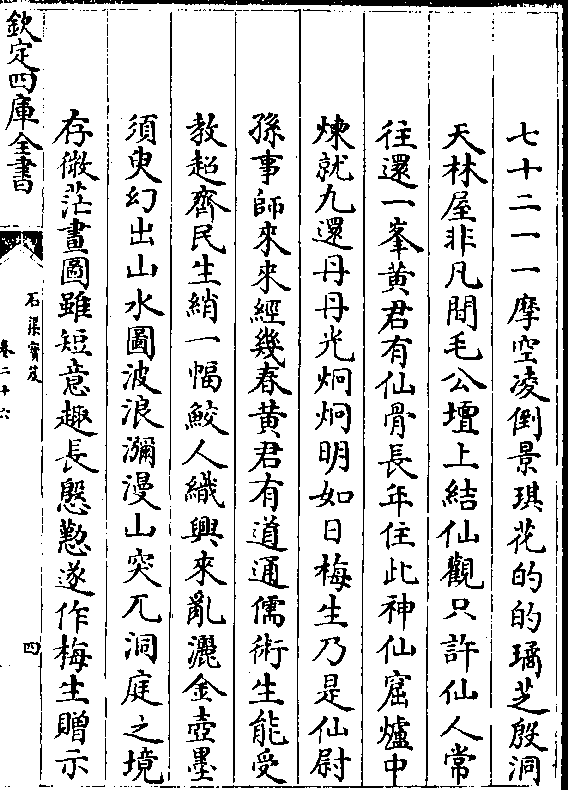 七十二一一摩空凌倒景琪花的的璚芝殷洞
天林屋非凡間毛公壇上結仙觀只許仙人常
往還一峯黄君有仙骨長年住此神仙窟爐中
煉就九還丹丹光炯炯明如日梅生乃是仙尉
孫事師來來經幾春黄君有道通儒術生能受
教超齊民生綃一幅鮫人織興來亂灑金壺墨
須臾幻出山水圖波浪瀰漫山突兀洞庭之境
存微茫畫圖雖短意趣長慇懃遂作梅生贈示
欽定四庫全書
石渠寳笈
卷二十六
四